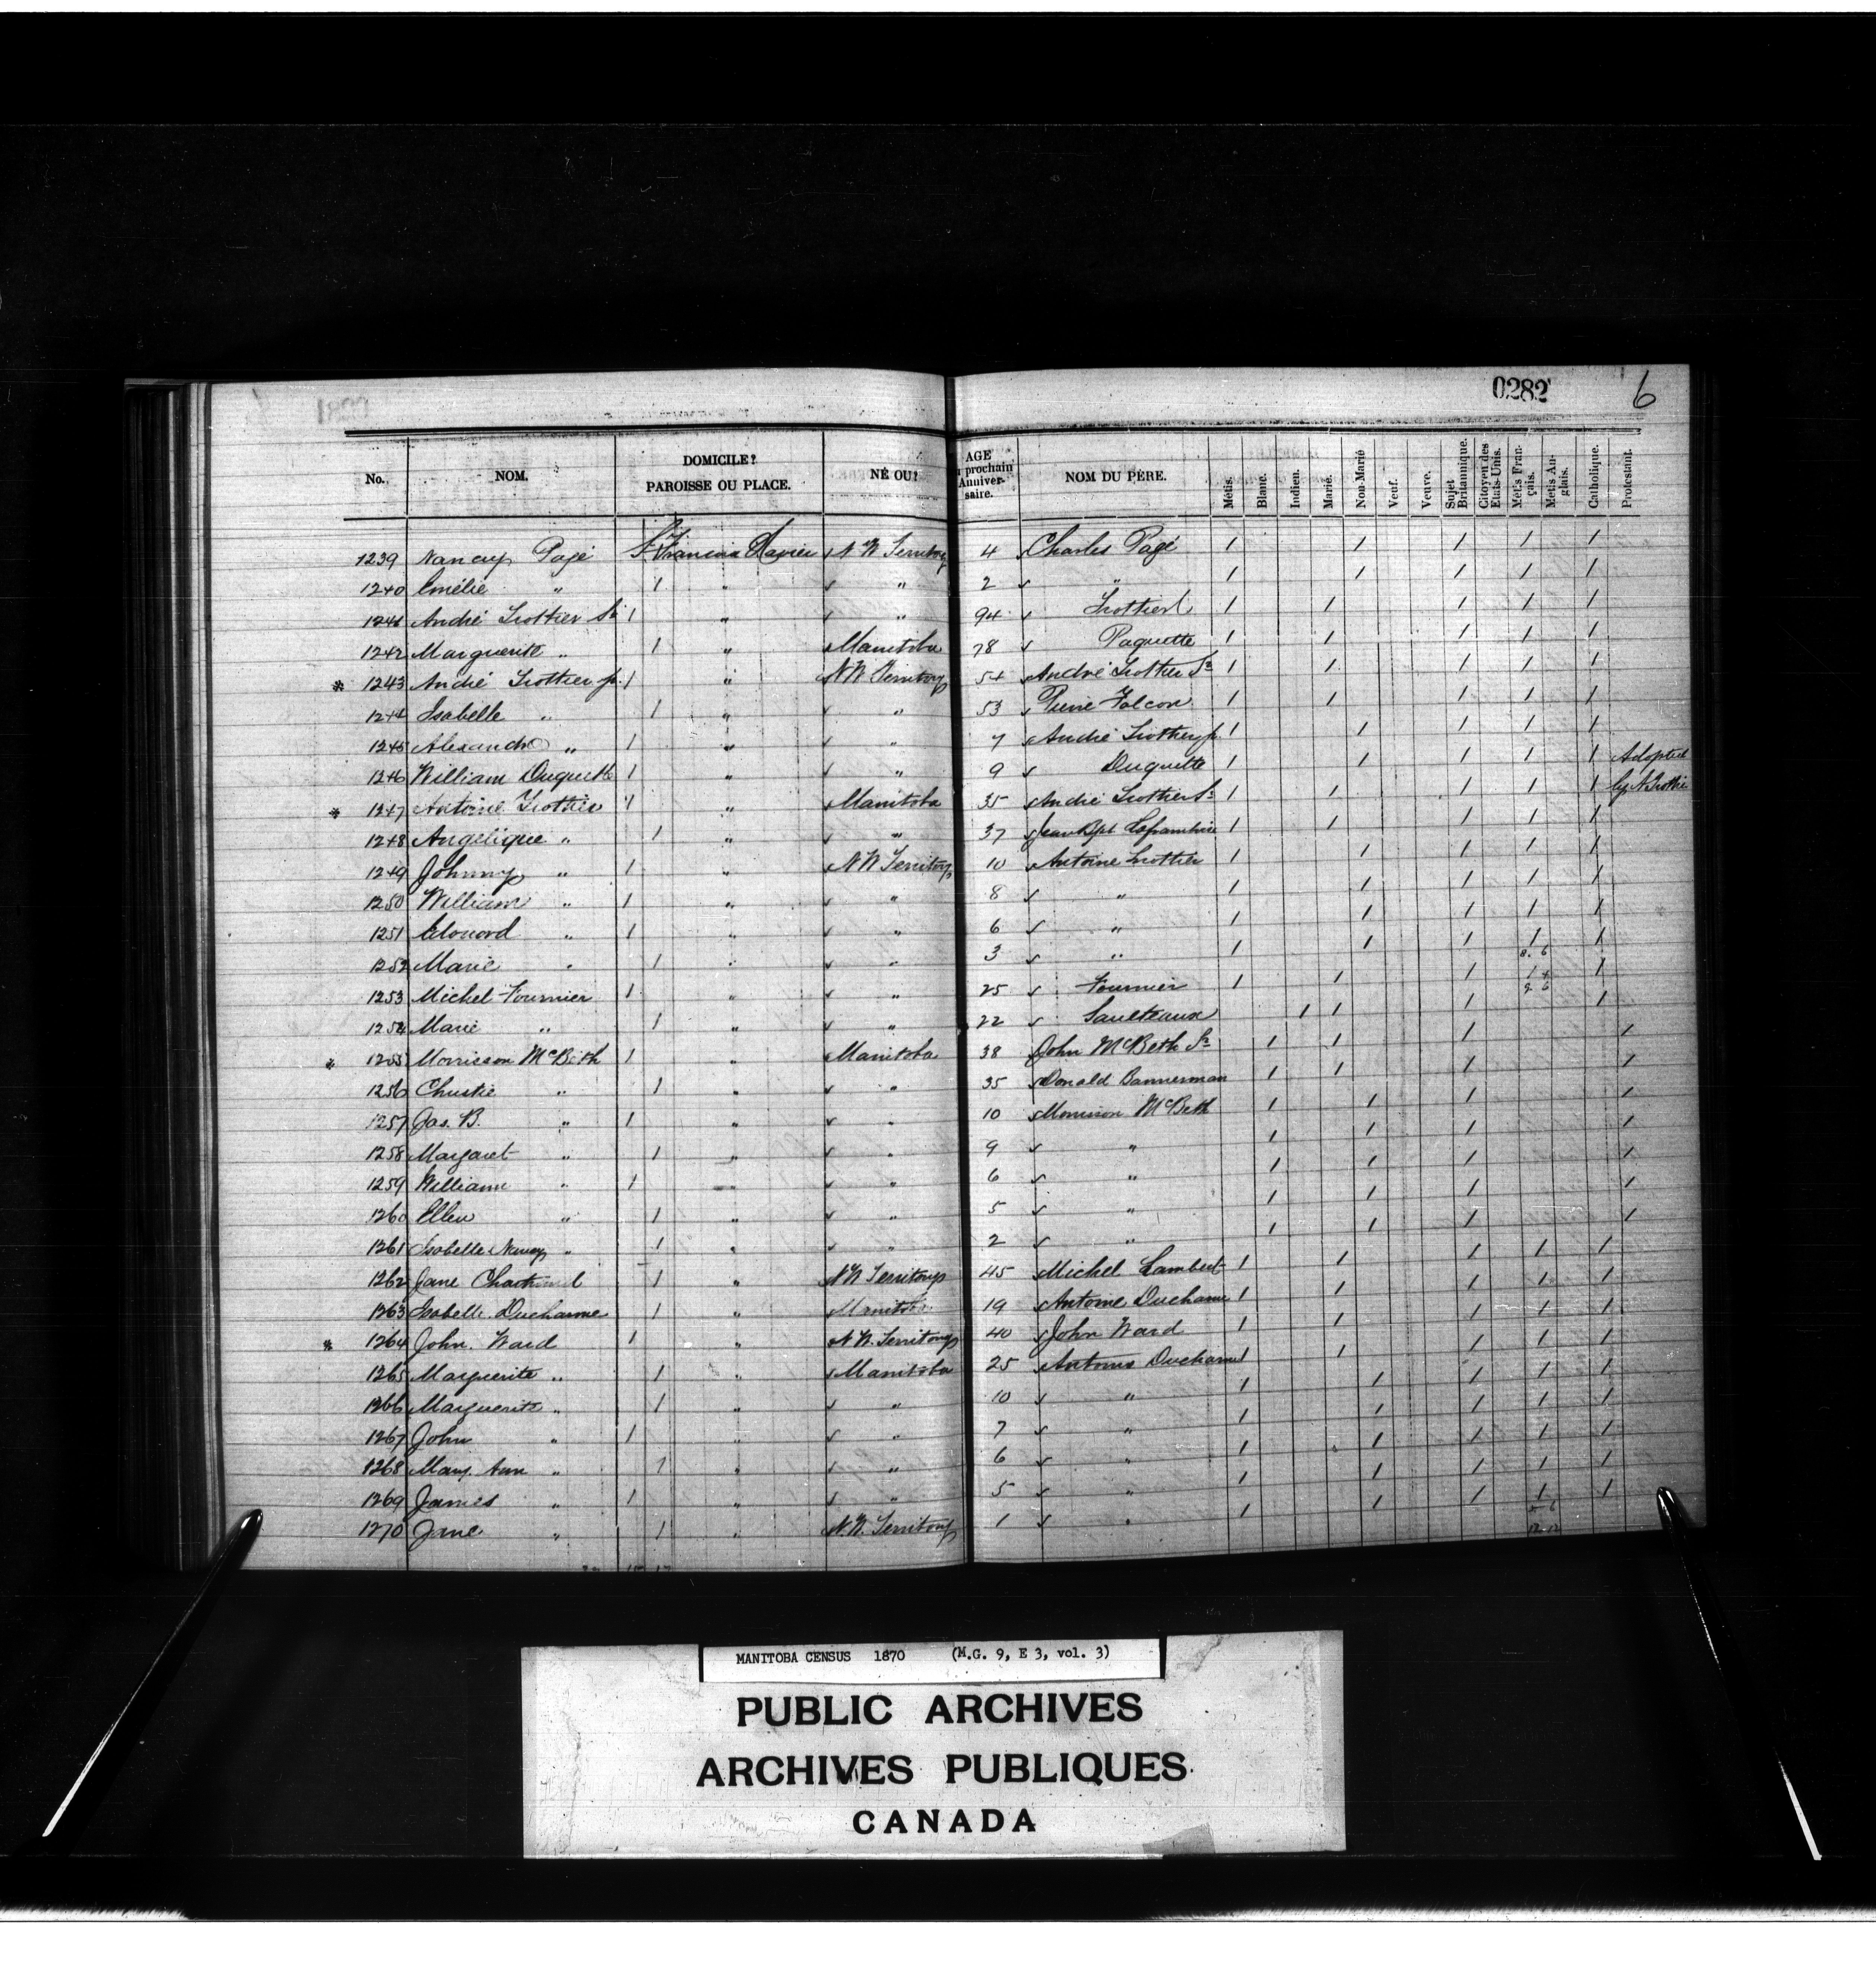 0282 6
No. NOM. DOMICILE? PAROISSE OU PLACE. NÉ OU? AGE prochain Anniversaire. NOM DU PÈRE. Métis. Blanc. Indien. Marié. Non-Marié Veuf. Veuve. Sujet Britannique. Citoyen des Etats-Unis. Métis Français. Metis Anglais. Catholique. Protestant.
1239 Nancy Pagé 1 St Francois Xavier N W Territory 4 Charles Pagé 1 1 1 1 1
1240 Emélie " 1 " " 2 " 1 1 1 1 1
1241 André Trottier Sr 1 " " 94 Trottier 1 1 1 1 1
1242 Marguerite " 1 " Manitoba 78 Paquette 1 1 1 1 1
* 1243 André Trottier jr. 1 " N W Territory 54 André Trottier Sr 1 1 1 1 1
1244 Isabelle " 1 " " 53 Pierre Falcon 1 1 1 1 1
1245 Alexandre " 1 " " 7 André Trottier jr 1 1 1 1 1
1246 William Duquette 1 " " 9 Duquette 1 1 1 1 1 Adopted
* 1247 Antoine Trottier 1 " Manitoba 35 André Trottier Sr 1 1 1 1 1 by A Trottier
1248 Angelique " 1 " " 37 Jean Bpt Laframbise 1 1 1 1 1
1249 Johnny " 1 " N W Territory 10 Antoine Trottier 1 1 1 1 1
1250 William " 1 " " 8 " 1 1 1 1 1
1251 Edouard " 1 " " 6 " 1 1 1 1 1
1252 Marie " 1 " " 3 " 1 1 1 1 1
1253 Michel Fournier 1 " " 25 Fournier 1 1 1 1 1
1254 Marie " 1 " " 22 Saulteaux 1 1 1 1
* 1255 Morrison McBeth 1 " Manitoba 38 John McBeth Sr 1 1 1 1
1256 Christie " 1 " " 35 Donald Bannerman 1 1 1 1
1257 Jas. B. " 1 " " 10 Morrison McBeth 1 1 1 1
1258 Margaret " 1 " " 9 " 1 1 1 1
1259 William " 1 " " 6 " 1 1 1 1
1260 Ellen " 1 " " 5 " 1 1 1 1
1261 Isabelle Nancy " 1 " " 2 " 1 1 1 1
1262 Jane 1 " N W Territory 45 Michel Lambert 1 1 1 1 1
1263 Isabelle Ducharme 1 " Manitoba 19 Antoine Ducharme 1 1 1 1 1
* 1264 John Ward 1 " N W. Territory 40 John Ward 1 1 1 1 1
1265 Marguerite " 1 " Manitoba 25 Antoine Ducharme 1 1 1 1 1
1266 Marguerite " 1 " " 10 " 1 1 1 1 1
1267 John " 1 " " 7 " 1 1 1 1 1
1268 Mary Ann " 1 " " 6 " 1 1 1 1 1
1269 James " 1 " " 5 " 1 1 1 1 1
1270 Jane " 1 " N. W. Territory 1 " 1 1 1 1 1
MANITOBA CENSUS 1870 (M.G. 9, E 3, vol. 3)
PUBLIC ARCHIVES
ARCHIVES PUBLIQUES
CANADA